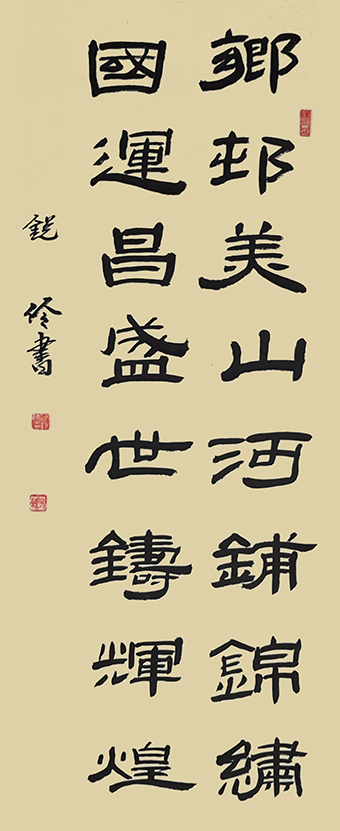 鄉邨美山河鋪錦繡
國運昌盛世鑄輝煌
銳伶書